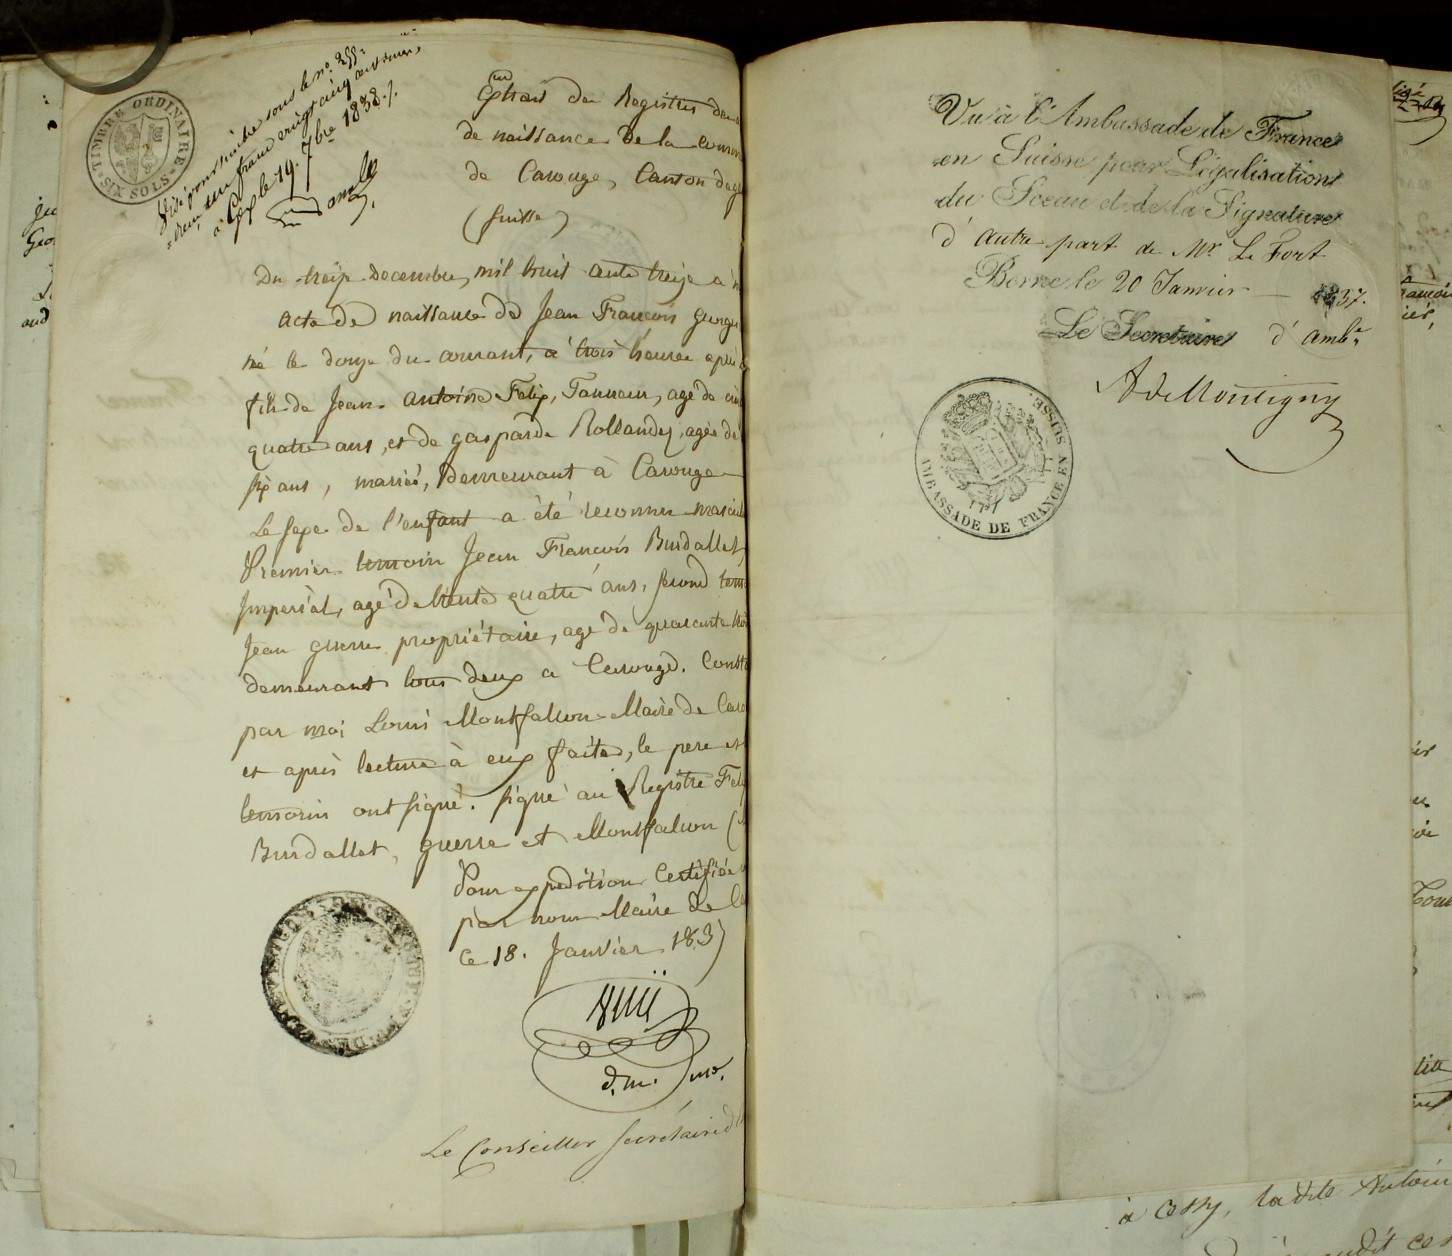 TIMBRE ORDINAIRE
SIX SOLS
Visé pour timbre sous le no. 255
Reçu un franc vingt cinq centimes,
à le 19. 7bre 1838./.
Extrait des Registres des
de naissance de la commu
de Carouge, Canton de ge
(Suisse)
Du treize Decembre, mil huit cents treize à
acte de naissance de Jean François George
né le douze du courant, à trois heures après
fils de Jean Antoine Felix, Tanneur, agé de cin
quatre ans, et de gasparde Rollandez, agée de
six ans, mariés, demeurant à Carouge
Le sexe de l'enfant a été reconnu mascul
Premier temoin Jean François Burdallet,
Imperial, agé de trente quatre ans, second tem
Jean guerre propriétaire, agé de quarante troi
demeurant tous deux a Carouge. Const
par moi Louis Montfalcon Maire de Caro
et après lecture à eux faites, le pere et
temoins ont signé. signé au Registre Felix
Burdallet, guerre et Montfalcon (
Pour expedition Certifiée
par nous Maire de Ca
Ce 18. Janvier 1837
Le Conseiller secrétaire d
Vu à l'Ambassade de France
en Suisse pour Légalisation
du Sceau et de la Signature
d'autre part de Mr. Le Fort
Berne le 20 Janvier 1837.
Le Secretaire d'Ambe.
A de Montigny
AMBASSADE DE FRANCE EN SUISSE.
à Cossy, la dite Antoin